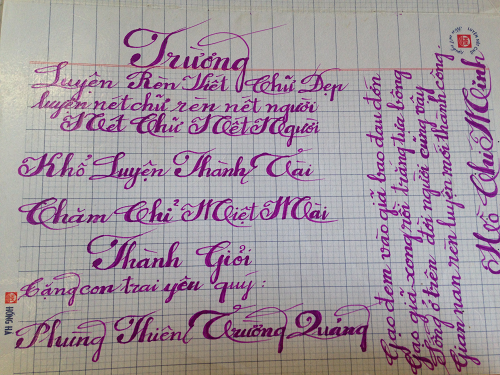 Trường
Luyện Rèn Viết Chữ Đẹp
luyện nét chữ rèn nết người
Nét Chữ Nết Người
Khổ Luyện Thành Tài
Chăm Chỉ Miệt Mài
Thành Giỏi
Tặng con trai yêu quý:
Phung Thiên Trường Quảng
Gạo đem vào giã bao đau đớn
Gạo giã xong rồi trắng tựa bông
Sống ở trên đời người cũng vậy
Gian nan rèn luyện mới thành công.
Hồ Chí Minh
HỒNG HÀ